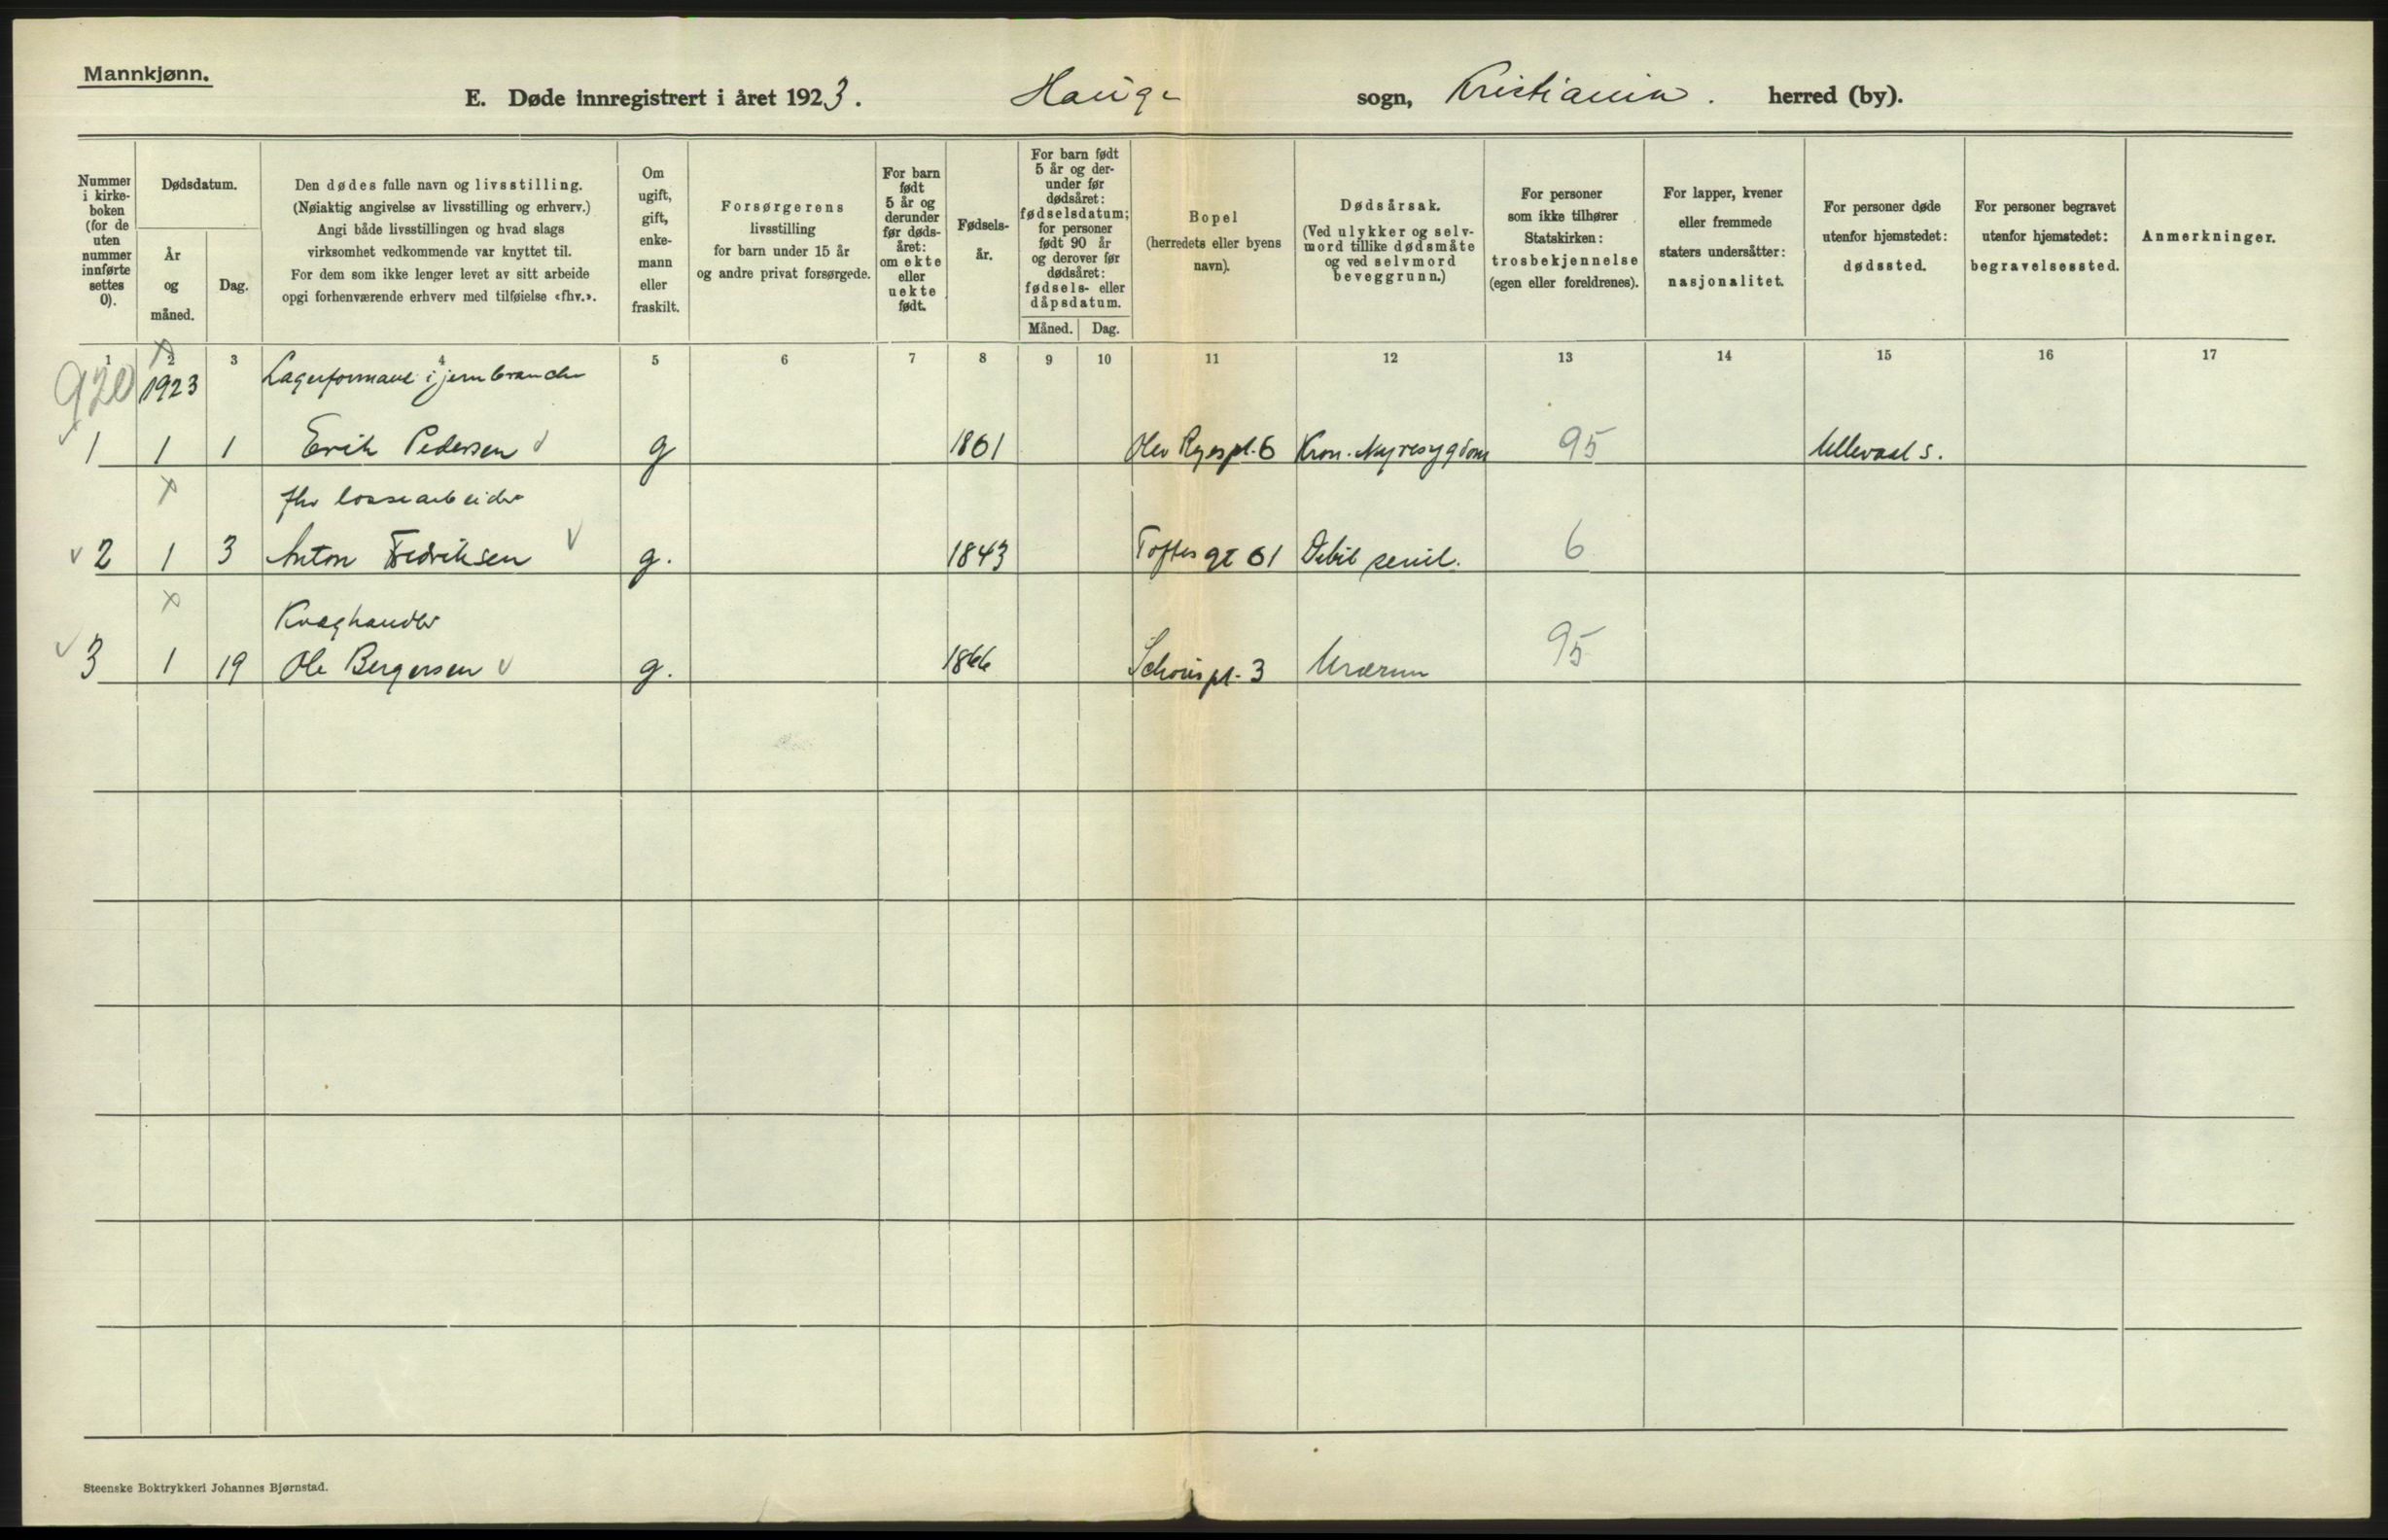 Mannkjønn.
E. Døde innregistrert i året 1923. Hauge sogn, Kristiania. herred (by).
Nummer i kirke- boken (for de uten nummer innførte settes 0).
Dødsdatum.
År og måned.
Dag.
Den dødes fulle navn og livsstilling.
(Nøiaktig angivelse av livsstilling og erhverv.)
Angi både livsstillingen og hvad slags
virksomhet vedkommende var knyttet til.
For dem som ikke lenger levet av sitt arbeide
opgi forhenværende erhverv med tilføielse «fhv.».
Om ugift, gift, enke- mann eller fraskilt.
Forsørgerens
livsstilling
for barn under 15 år
og andre privat forsørgede.
For barn født 5 år og derunder før døds- året: om ekte eller uekte født.
Fødsels- år.
For barn født 5 år og der- under før dødsåret: fødselsdatum; for personer født 90 år og derover før dødsåret: fødsels- eller dåpsdatum.
Måned. Dag.
Bopel
(herredets eller byens
navn).
Dødsårsak.
(Ved ulykker og selv-
mord tillike dødsmåte
og ved selvmord
beveggrunn.)
For personer
som ikke tilhører
Statskirken:
trosbekjennelse
(egen eller foreldrenes).
For lapper, kvener
eller fremmede
staters undersåtter:
nasjonalitet.
For personer døde
utenfor hjemstedet:
dødssted.
For personer begravet
utenfor hjemstedet:
begravelsessted.
Anmerkninger.
1 2 3 4 5 6 7 8 9 10 11 12 13 14 15 16 17
920 1923 Lagerformand i jernbranche
1 1 1 Erik Pedersen g 1861 Olav Ryes pl. 6 Kron. Nyresygdom 95 Ullevaal s.
fhv lossearbeider
2 1 3 Anton Fredriksen g. 1843 Toftes gt 61 Debil senil. 6
Kvæghandler
3 1 19 Ole Bergersen g. 1866 Schous pl. 3 Uræmi 95
Steenske Boktrykkeri Johannes Bjørnstad.